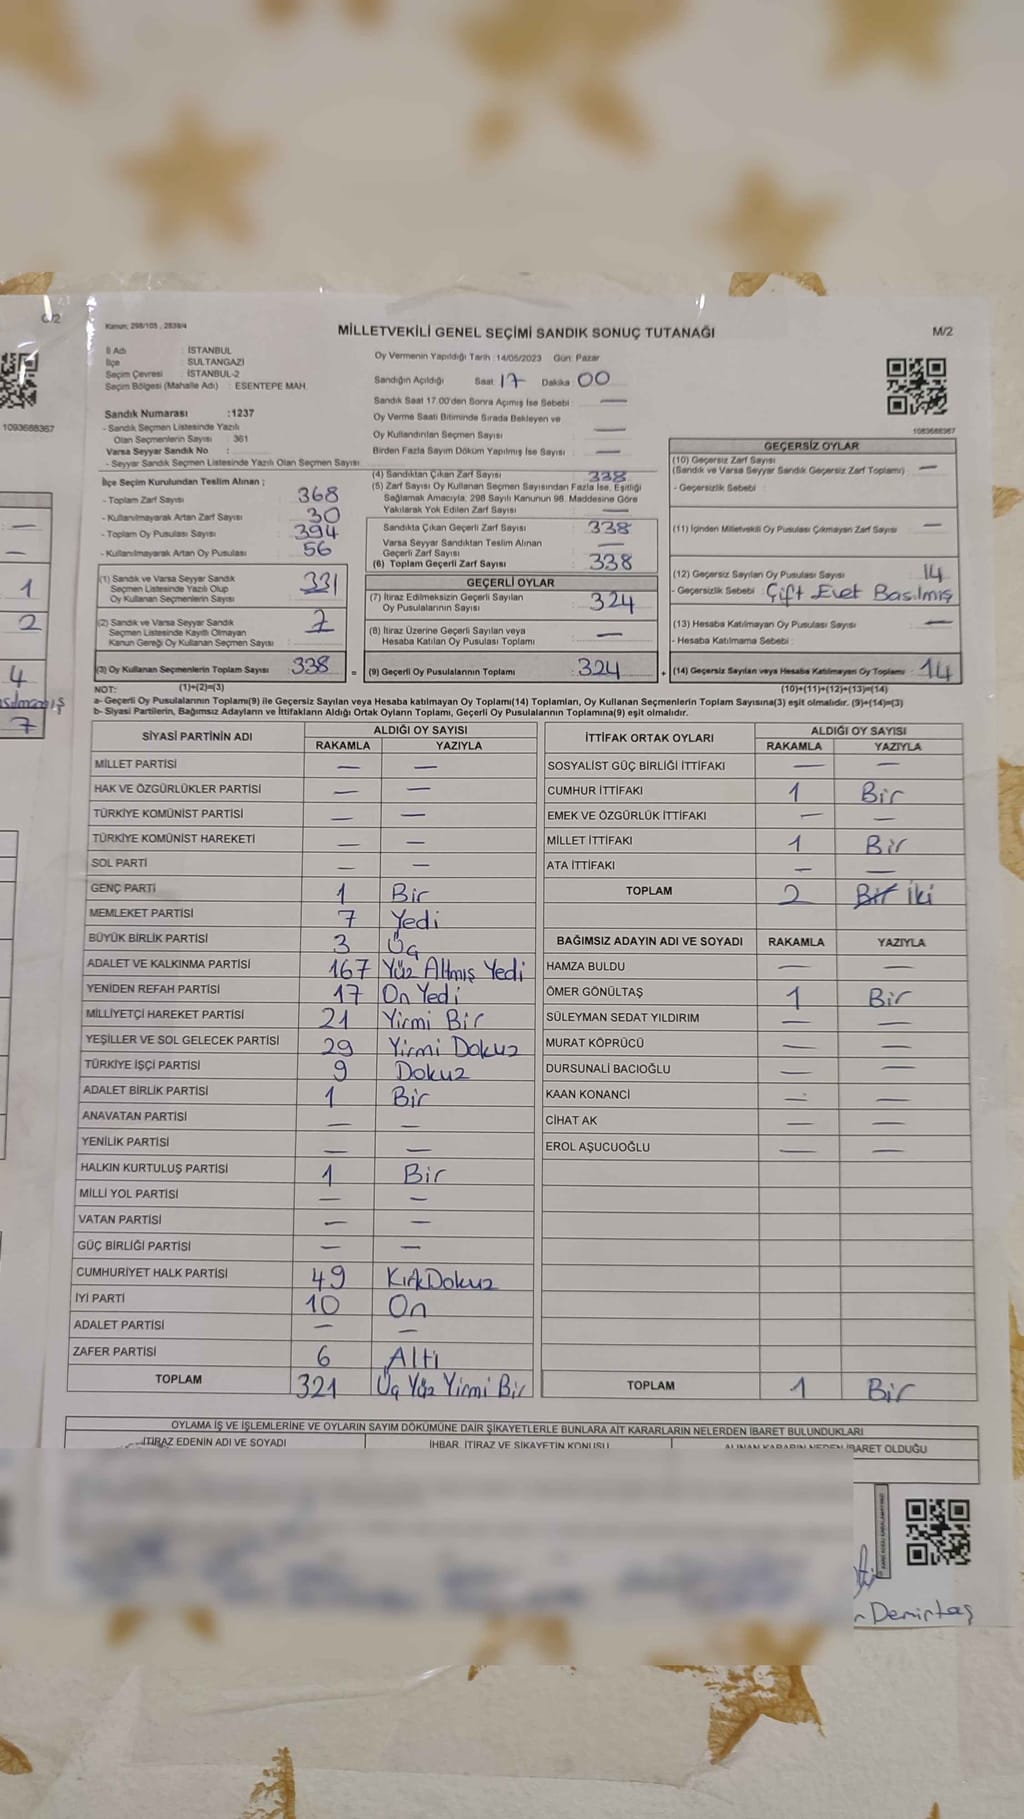 C/2
1093688367
1
2
4
7
Kanun; 298/105 , 2839/4
MİLLETVEKİLİ GENEL SEÇİMİ SANDIK SONUÇ TUTANAĞI
M/2
İl Adı : İSTANBUL
İlçe : SULTANGAZİ
Seçim Çevresi : İSTANBUL-2
Seçim Bölgesi (Mahalle Adı) : ESENTEPE MAH.
Oy Vermenin Yapıldığı Tarih :14/05/2023 Gün: Pazar
Sandığın Açıldığı Saat 17 Dakika 00
Sandık Saat 17.00'den Sonra Açımış İse Sebebi : —
Oy Verme Saati Bitiminde Sırada Bekleyen ve
Oy Kullandırılan Seçmen Sayısı —
Birden Fazla Sayım Döküm Yapılmış İse Sayısı : —
1083688367
Sandık Numarası :1237
- Sandık Seçmen Listesinde Yazılı
Olan Seçmenlerin Sayısı : 361
Varsa Seyyar Sandık No :
- Seyyar Sandık Seçmen Listesinde Yazılı Olan Seçmen Sayısı
İlçe Seçim Kurulundan Teslim Alınan ;
- Toplam Zarf Sayısı 368
- Kullanılmayarak Artan Zarf Sayısı 30
- Toplam Oy Pusulası Sayısı 394
- Kullanılmayarak Artan Oy Pusulası 56
(1) Sandık ve Varsa Seyyar Sandık
Seçmen Listesinde Yazılı Olup
Oy Kullanan Seçmenlerin Sayısı 331
(2) Sandık ve Varsa Seyyar Sandık
Seçmen Listesinde Kayıtlı Olmayan
Kanun Gereği Oy Kullanan Seçmen Sayısı 7
(3) Oy Kullanan Seçmenlerin Toplam Sayısı 338
(4) Sandıktan Çıkan Zarf Sayısı 338
(5) Zarf Sayısı Oy Kullanan Seçmen Sayısından Fazla İse, Eşitliği
Sağlamak Amacıyla, 298 Sayılı Kanunun 98. Maddesine Göre
Yakılarak Yok Edilen Zarf Sayısı —
Sandıkta Çıkan Geçerli Zarf Sayısı 338
Varsa Seyyar Sandıktan Teslim Alınan
Geçerli Zarf Sayısı —
(6) Toplam Geçerli Zarf Sayısı 338
GEÇERLİ OYLAR
(7) İtiraz Edilmeksizin Geçerli Sayılan
Oy Pusulalarının Sayısı 324
(8) İtiraz Üzerine Geçerli Sayılan veya
Hesaba Katılan Oy Pusulası Toplamı —
= (9) Geçerli Oy Pusulalarının Toplamı 324
GEÇERSİZ OYLAR
(10) Geçersiz Zarf Sayısı
(Sandık ve Varsa Seyyar Sandık Geçersiz Zarf Toplamı) —
- Geçersizlik Sebebi :
(11) İçinden Milletvekili Oy Pusulası Çıkmayan Zarf Sayısı —
(12) Geçersiz Sayılan Oy Pusulası Sayısı 14
- Geçersizlik Sebebi : Çift Evet Basılmış
(13) Hesaba Katılmayan Oy Pusulası Sayısı —
- Hesaba Katılmama Sebebi :
+ (14) Geçersiz Sayılan veya Hesaba Katılmayan Oy Toplamı 14
NOT: (1)+(2)=(3) (10)+(11)+(12)+(13)=(14)
a- Geçerli Oy Pusulalarının Toplamı(9) ile Geçersiz Sayılan veya Hesaba katılmayan Oy Toplamı(14) Toplamları, Oy Kullanan Seçmenlerin Toplam Sayısına(3) eşit olmalıdır. (9)+(14)=(3)
b- Siyasi Partilerin, Bağımsız Adayların ve İttifakların Aldığı Ortak Oyların Toplamı, Geçerli Oy Pusulalarının Toplamına(9) eşit olmalıdır.
SİYASİ PARTİNİN ADI ALDIĞI OY SAYISI
RAKAMLA YAZIYLA
MİLLET PARTİSİ — —
HAK VE ÖZGÜRLÜKLER PARTİSİ — —
TÜRKİYE KOMÜNİST PARTİSİ — —
TÜRKİYE KOMÜNİST HAREKETİ — —
SOL PARTİ — —
GENÇ PARTİ 1 Bir
MEMLEKET PARTİSİ 7 Yedi
BÜYÜK BİRLİK PARTİSİ 3 Üç
ADALET VE KALKINMA PARTİSİ 167 Yüz Altmış Yedi
YENİDEN REFAH PARTİSİ 17 On Yedi
MİLLİYETÇİ HAREKET PARTİSİ 21 Yirmi Bir
YEŞİLLER VE SOL GELECEK PARTİSİ 29 Yirmi Dokuz
TÜRKİYE İŞÇİ PARTİSİ 9 Dokuz
ADALET BİRLİK PARTİSİ 1 Bir
ANAVATAN PARTİSİ — —
YENİLİK PARTİSİ — —
HALKIN KURTULUŞ PARTİSİ 1 Bir
MİLLİ YOL PARTİSİ — —
VATAN PARTİSİ — —
GÜÇ BİRLİĞİ PARTİSİ — —
CUMHURİYET HALK PARTİSİ 49 Kırk Dokuz
İYİ PARTİ 10 On
ADALET PARTİSİ — —
ZAFER PARTİSİ 6 Altı
TOPLAM 321 Üç Yüz Yirmi Bir
İTTİFAK ORTAK OYLARI ALDIĞI OY SAYISI
RAKAMLA YAZIYLA
SOSYALİST GÜÇ BİRLİĞİ İTTİFAKI — —
CUMHUR İTTİFAKI 1 Bir
EMEK VE ÖZGÜRLÜK İTTİFAKI — —
MİLLET İTTİFAKI 1 Bir
ATA İTTİFAKI — —
TOPLAM 2 Bir İki
BAĞIMSIZ ADAYIN ADI VE SOYADI RAKAMLA YAZIYLA
HAMZA BULDU — —
ÖMER GÖNÜLTAŞ 1 Bir
SÜLEYMAN SEDAT YILDIRIM — —
MURAT KÖPRÜCÜ — —
DURSUNALİ BACIOĞLU — —
KAAN KONANCİ — —
CİHAT AK — —
EROL AŞUCUOĞLU — —
TOPLAM 1 Bir
OYLAMA İŞ VE İŞLEMLERİNE VE OYLARIN SAYIM DÖKÜMÜNE DAİR ŞİKAYETLERLE BUNLARA AİT KARARLARIN NELERDEN İBARET BULUNDUKLARI
İTİRAZ EDENİN ADI VE SOYADI İHBAR, İTİRAZ VE ŞİKAYETİN KONUSU ALINAN KARARIN NEDEN İBARET OLDUĞU
Demirtaş